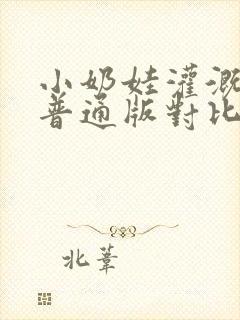 小奶娃灌溉
普通版對比
北葦